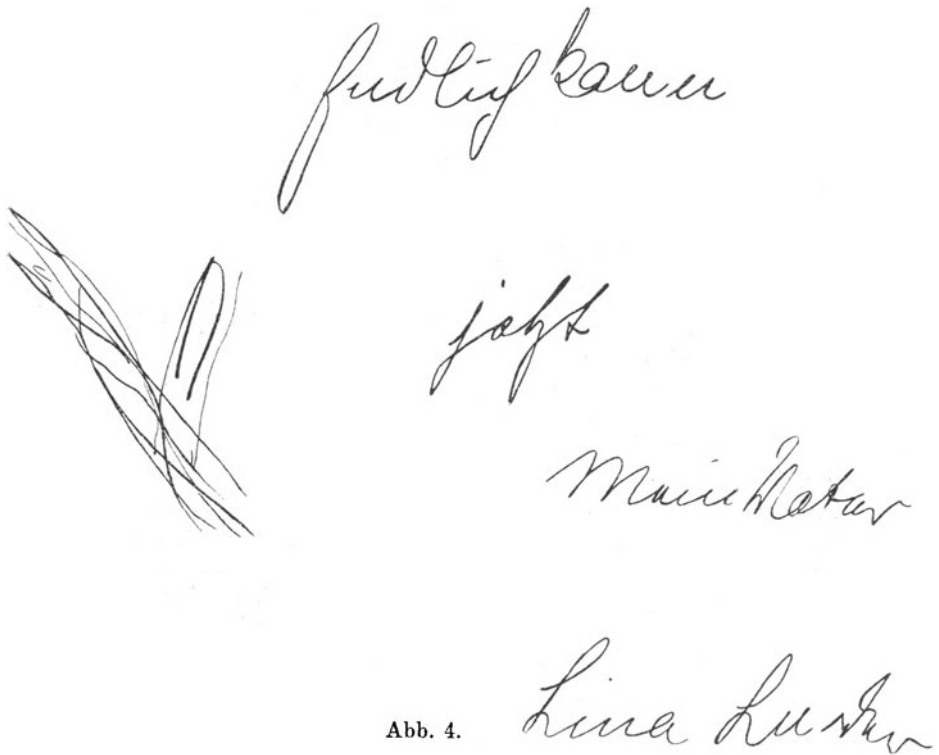 Endlich kann
jetzt
Mein Vater
Abb. 4.
Lina